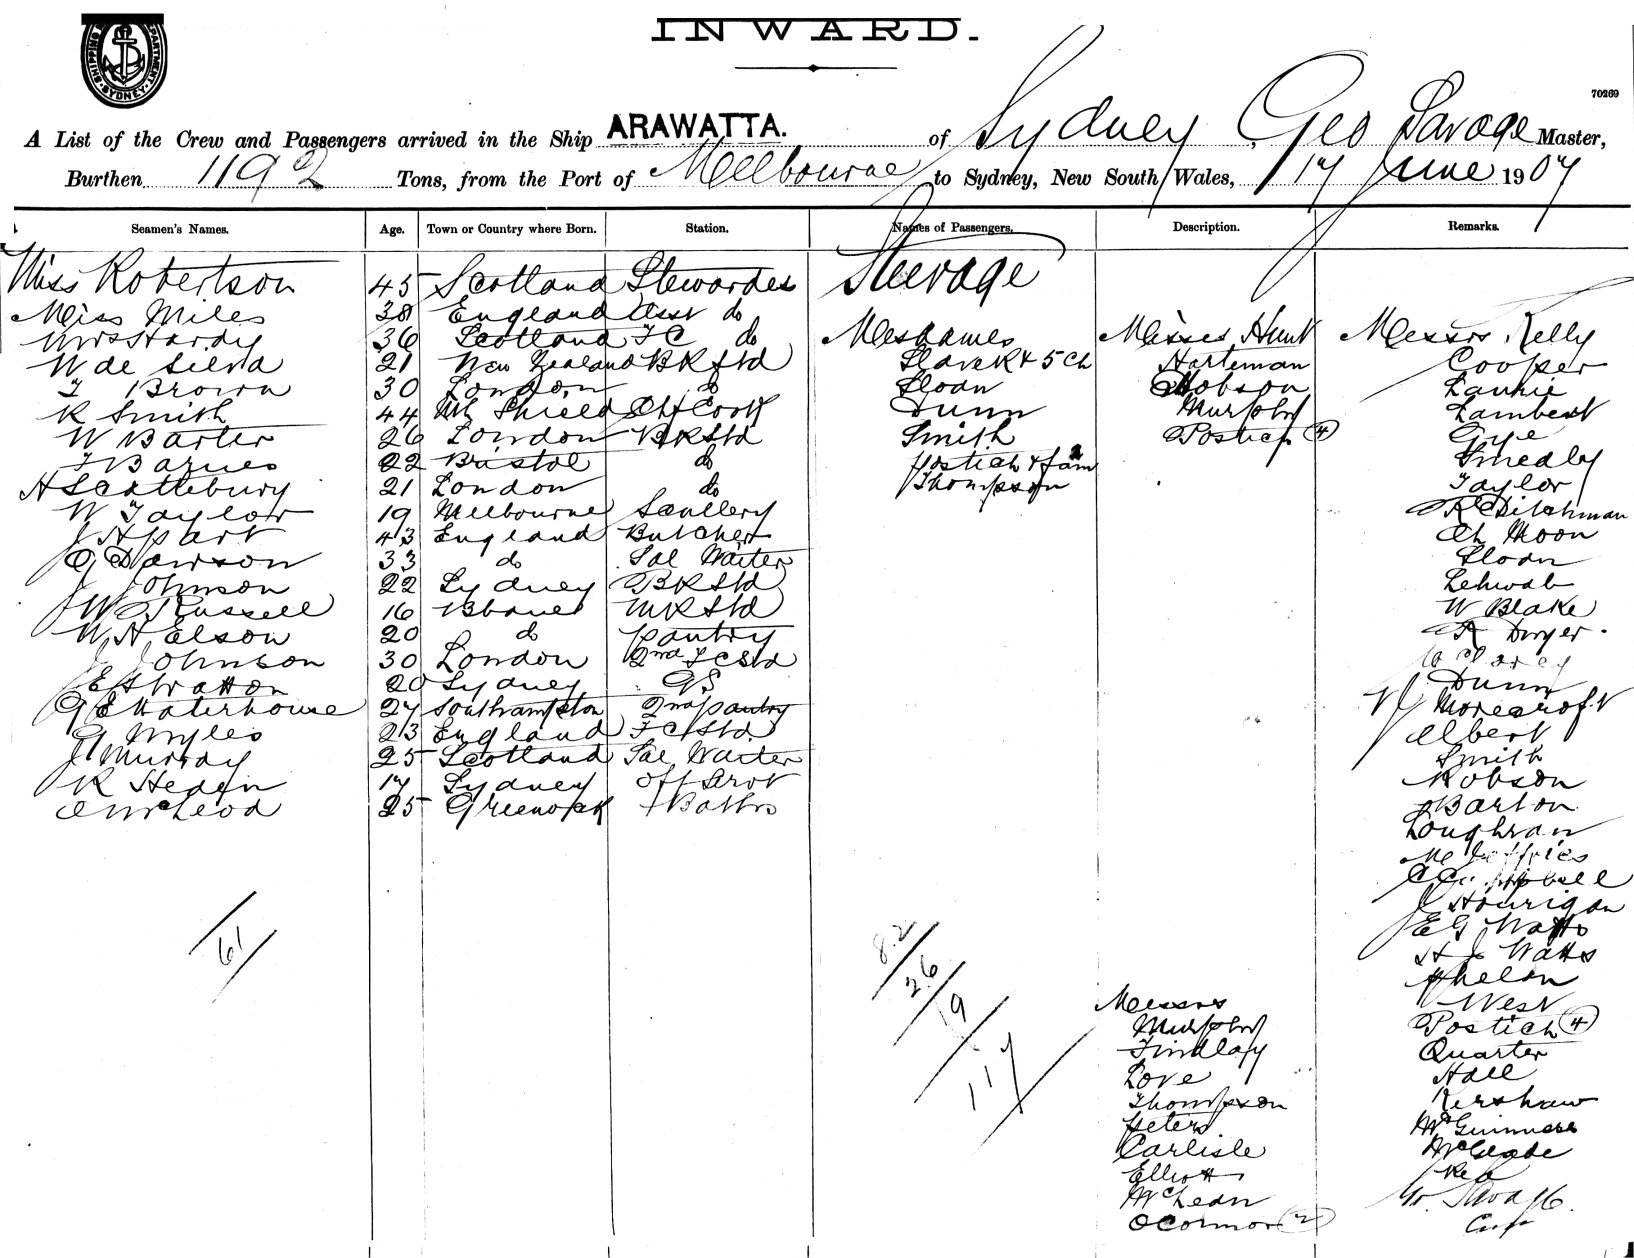 INWARD.
SHIPPING DEPARTMENT. SYDNEY.
70269
A List of the Crew and Passengers arrived in the Ship ARAWATTA. of Sydney Geo Savage Master,
Burthen 1192 Tons, from the Port of Melbourne to Sydney, New South Wales, 17 June 1907
Seamen's Names. Age. Town or Country where Born. Station. Names of Passengers. Description. Remarks.
Miss Robertson 45 Scotland Stewardes
Miss Miles 38 England Asst do
Mrs Hardy 36 Scotland FC do
W de Silva 21 New Zealand BR Std
F Brown 30 London do
R Smith 44 Nth Shield Chf Cook
W Barter 26 London BR Std
F Barnes 22 Bristol do
A Scattebury 21 London do
W Taylor 19 Melbourne Scullery
J Hart 43 England Butcher
G Dawson 33 do Sal Waiter
J Johnson 22 Sydney BR Std
W J Russell 16 Bbane MR Std
W H Olson 20 do Pantry
J Johnson 30 London 2nd FC Std
E H Watton 20 Sydney GS
G E Waterhouse 27 Southampton 2nd Pantry
G Myles 23 England FC Std
J Murray 25 Scotland Sal Waiter
R Heden 17 Sydney Off Srvt
C McLeod 25 Greenock Baths
61
Steerage
Mesdames
Slavek + 5 Ch
Sloan
Dunn
Smith
Postich & fam
Thompson
82
26
9
117
Misses Hunt
Harteman
Hobson
Murphy
Postich (4)
Messrs
Murphy
Findlay
Love
Thompson
Peters
Carlisle
Elliott
McLean
OConnor (2)
Messrs Kelly
Cooper
Laurie
Lambert
Gye
Smedly
Taylor
R Ditchman
Ch Moon
Sloan
Schwab
W Blake
A Dwyer.
Dunn
Morecroft
Albert
Smith
Robson
Barton
Loughran
Mc Jeffries
C Campbell
J Hourigan
E G Watts
H J Watts
Phelan
West
Postich (4)
Quarter
Hall
Kershaw
McGuinness
McGlade
Rea